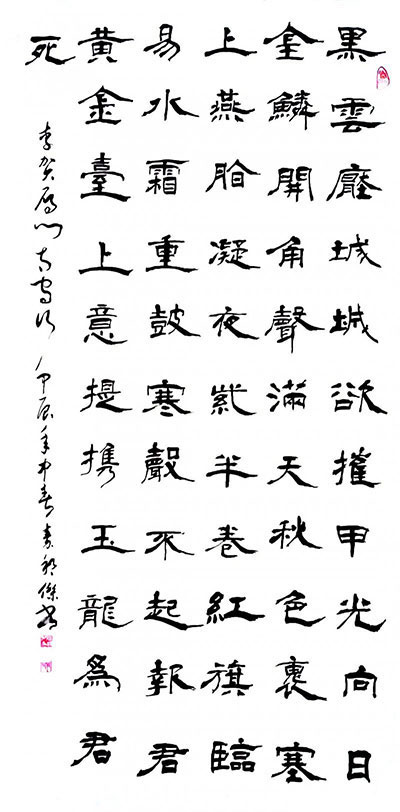 黑雲壓城城欲摧甲光向日
金鱗開角聲滿天秋色裏塞
上燕脂凝夜紫半卷紅旗臨
易水霜重鼓寒聲不起報君
黃金臺上意提携玉龍爲君
死
李贺雁門太守行 甲辰年中春 傑書